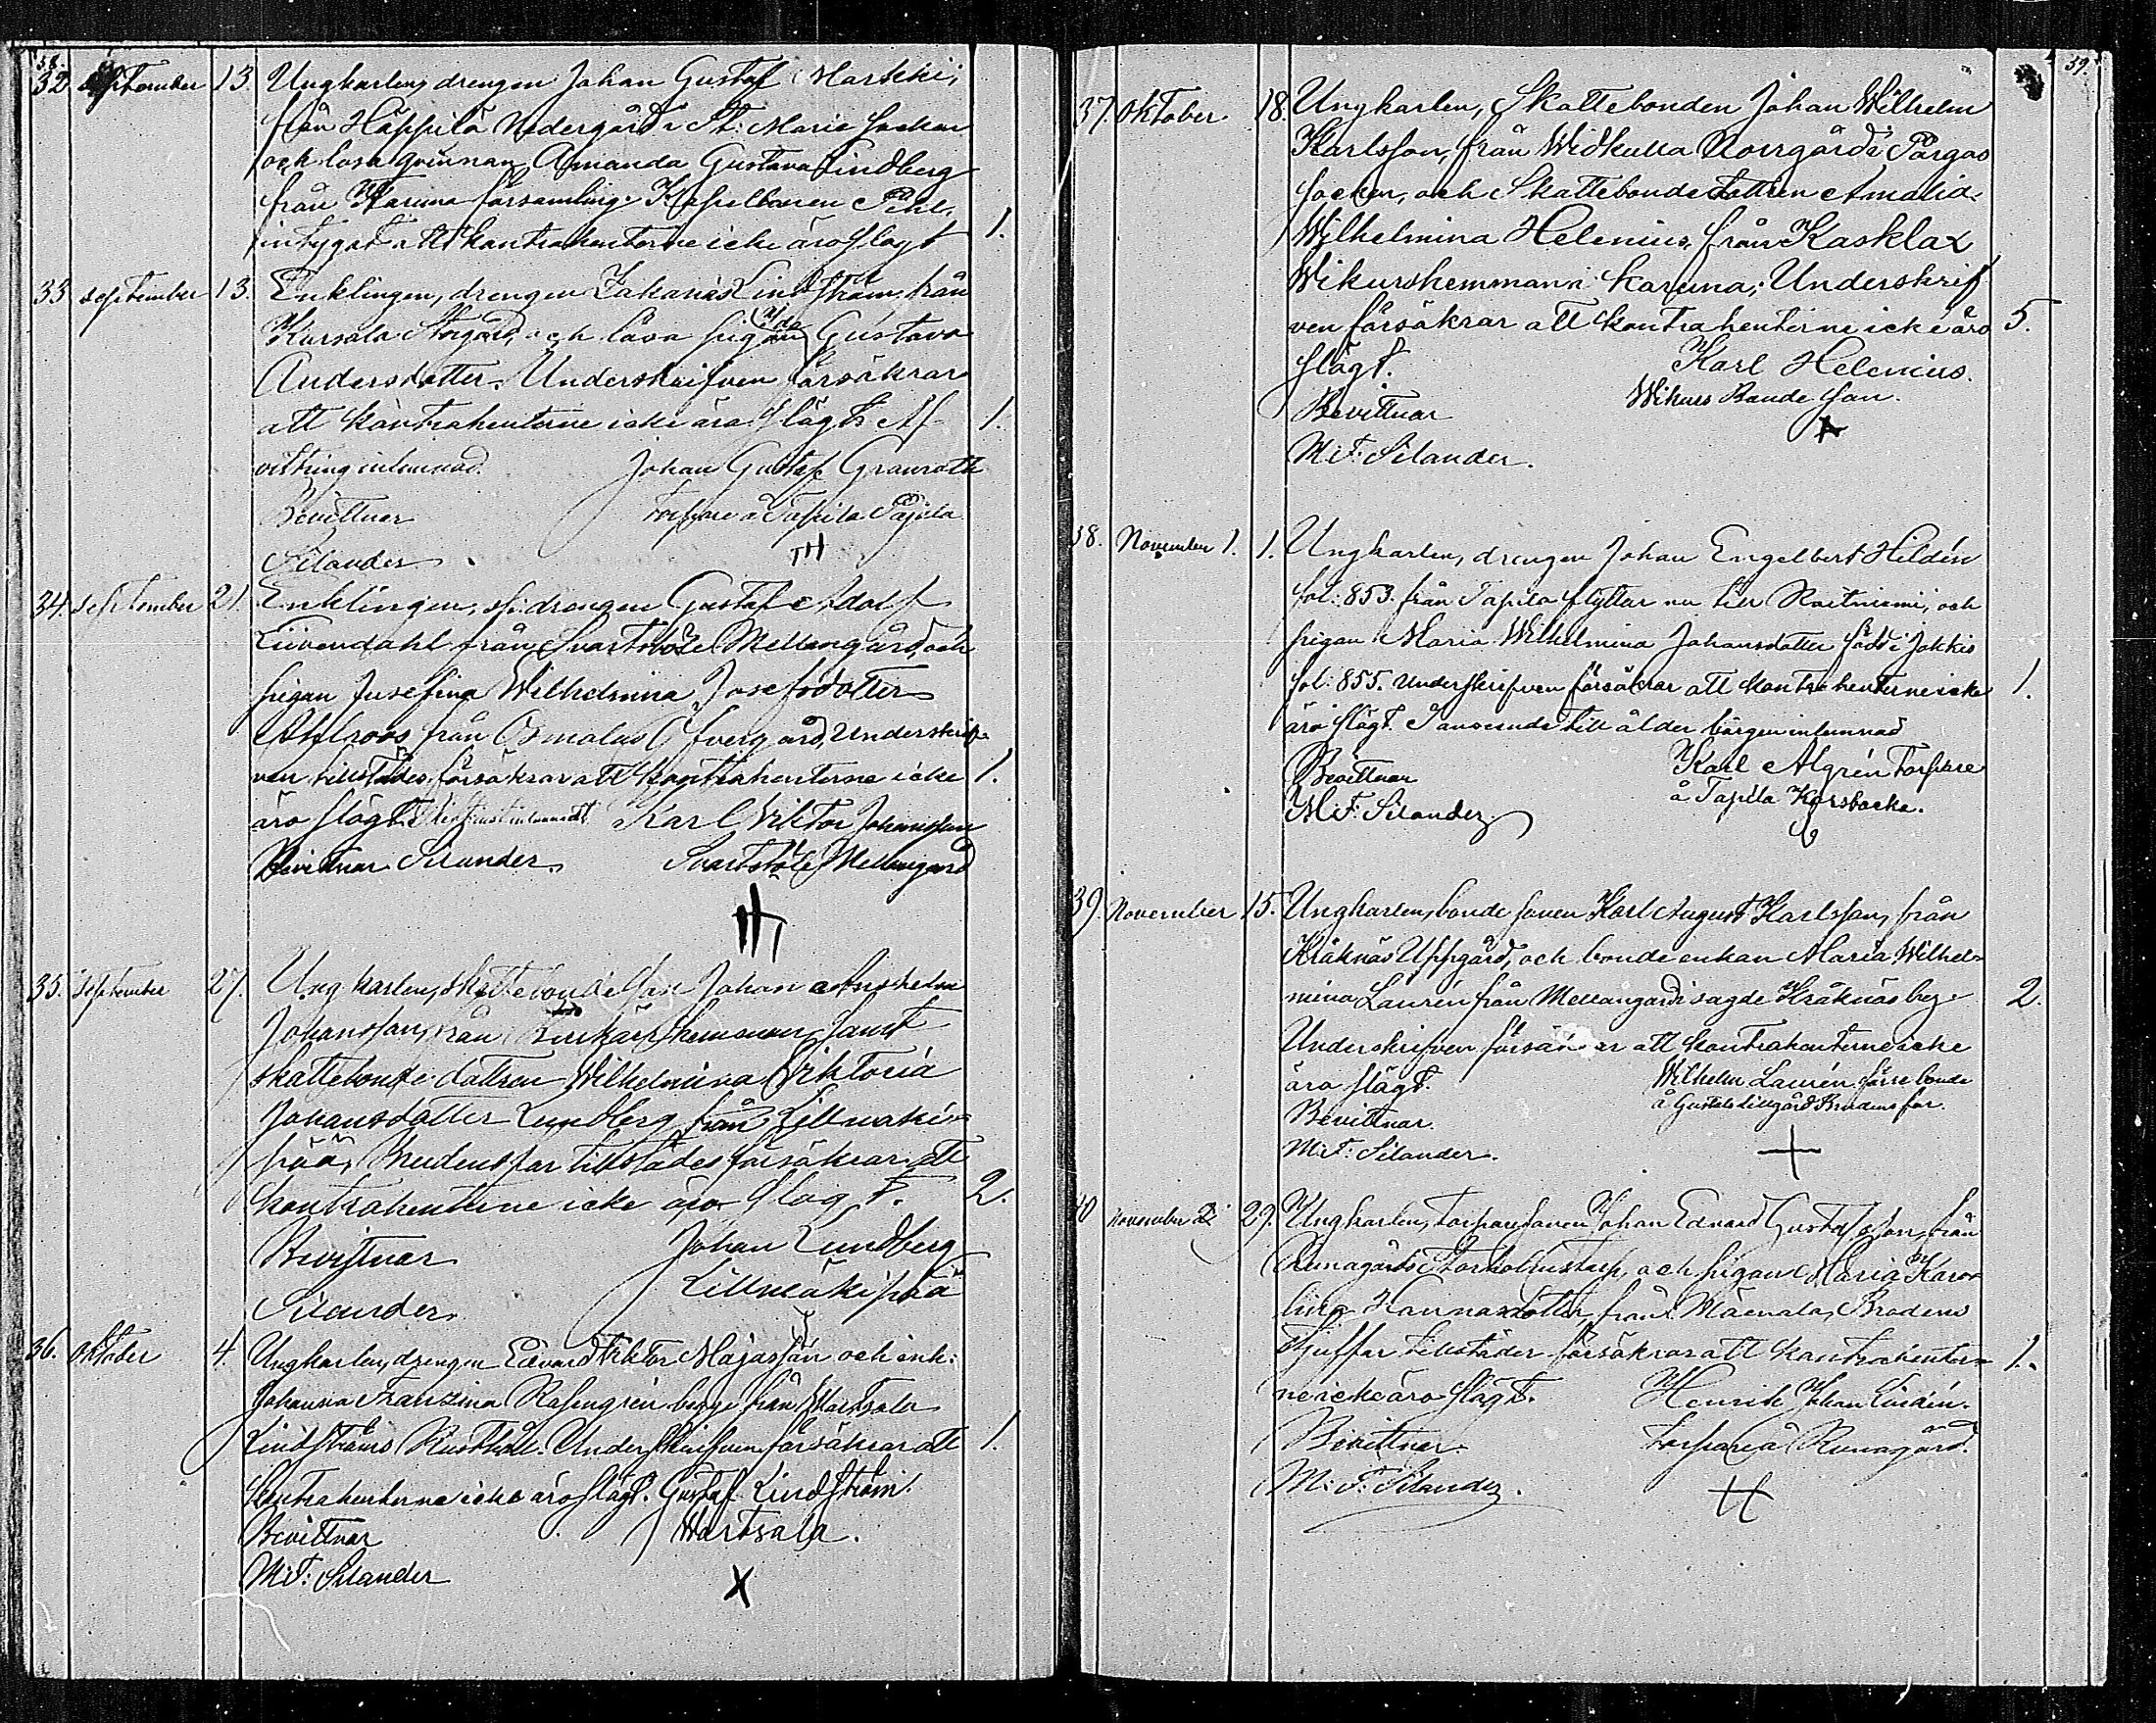 58.
32 September 13. Ungkarlen, drengen Johan Gustaf Markki,
från Häppilä Nedergård i St: Marie socken
och lösa qvinnan Amanda Gustava Lindberg
från Karuna församling. Kapellanen Pihl.
intygat att kontrahenterne icke äro slägt 1.
33 September 13. Enklingen, drengen Zakarias Lindström från
Karsala Storgård, och lösa pigan Gustava
Andersdotter. Underskrifven försäkrar
att kontrahenterne icke äro slägt. Af 1.
vittring inlemnad. Johan Gustaf Granroth
Bevittnar Torpare å Tapila Päjula
Silander TH
34. September 21. Enklingen, drengen Gustaf Adolf
Liivendahl från Svartstöle Mellangård och
pigan Josefina Wilhelmina Josefsdotter
Ahlroos från Osmalas Öfvergård, Underskrif
ven tillstädes försäkrar att kontrahenterne icke 1.
äro slägt. Karl Viktor Johansson
Bevittnar Silander. Svartstöle Mellangård
35. September 27. Ungkarlen, skattebonde son Johan Anshelm
Johansson, från hemman, samt
skattebonde dottren Wilhelmina Viktoria
Johansdotter Lundberg från Lillmäki=
pää, Brudens far tillstädes försäkrar att
kontrahenterne icke äro slägt. 2.
Bevittnar Johan Lundberg
Silander Lillmäkipää
36. Oktober 4. Ungkarlen, drengen Edvard Viktor Majasson och enk:
Johanna Franzina Rosengrén begge från Wartsala
Lindströms Rusthåll. Underskrifven försäkrar att 1.
kontrahenterne icke äro slägt. Gustaf Lindström.
Bevittnar Wartsala.
M:F: Silander X
39.
37. Oktober. 18. Ungkarlen, Skattebonden Johan Wilhelm
Karlsson, från Widkulla Norrgård i Pargas
socken, och Skattebondedottren Amalia
Wilhelmina Helenius, från Kasklax
Wikurs hemman i Karuna; Underskrif
ven försäkrar att kontrahenterne icke äro 5.
slägt. Karl Helenius.
Bevittnar Wikurs Bonde son.
M:F: Silander.
38. November 1. 1. Ungkarlen, drengen Johan Engelbert Hildén
fol: 853. från Tapila flyttar nu till Raitniemi, och
pigan Maria Wilhelmina Johansdotter född i Jokkis
fol: 855. Underskrifven försäkrar att kontrahenterne icke 1.
äro slägt. I anseende till ålder borgen inlemnad
Bevittnar Karl Algrén Torpare
M:F: Silander å Tapila Korsbacka.
39. November 15. Ungkarlen, bonde sonen Karl August Karlsson, från
Kråknäs Uppgård, och bonde enkan Maria Wilhel=
mina Laurén från Mellangård i sagde Kråknäs by. 2.
Underskrifven försäkrar att kontrahenterne icke
äro slägt. Wilhelm Laurén förre bonde
Bevittnar. å Gustals Lillgård Brudens far.
M:F: Silander.
40 November 29. Ungkarlen, torparesonen Johan Edvard Gustafsson, från
Runagårds Storholmstorp, och pigan Maria Karo=
lina Hannasdotter, från Mäenala, Brudens
stjuffar tillstädes försäkrar att kontrahenter= 1.
ne icke äro slägt. Henrik Johan Lindén.
Bevittnar. Torpare å Runagård.
M:F: Silander.